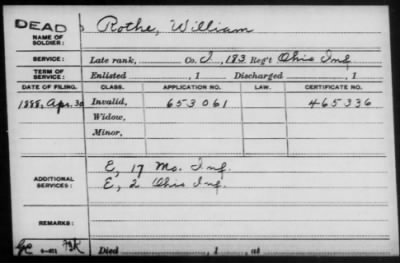 DEAD
NAME OF SOLDIER: Rothe, William
SERVICE: Late rank, Co. I, 183 Reg't Ohio Inf.
TERM OF SERVICE: Enlisted , 1 Discharged , 1
DATE OF FILING. CLASS. APPLICATION NO. LAW. CERTIFICATE NO.
1888, Apr. 30 Invalid, 653061 465336
Widow,
Minor,
ADDITIONAL SERVICES: E, 17 Mo. Inf.
E, 2 Ohio Inf.
REMARKS:
Died , 1